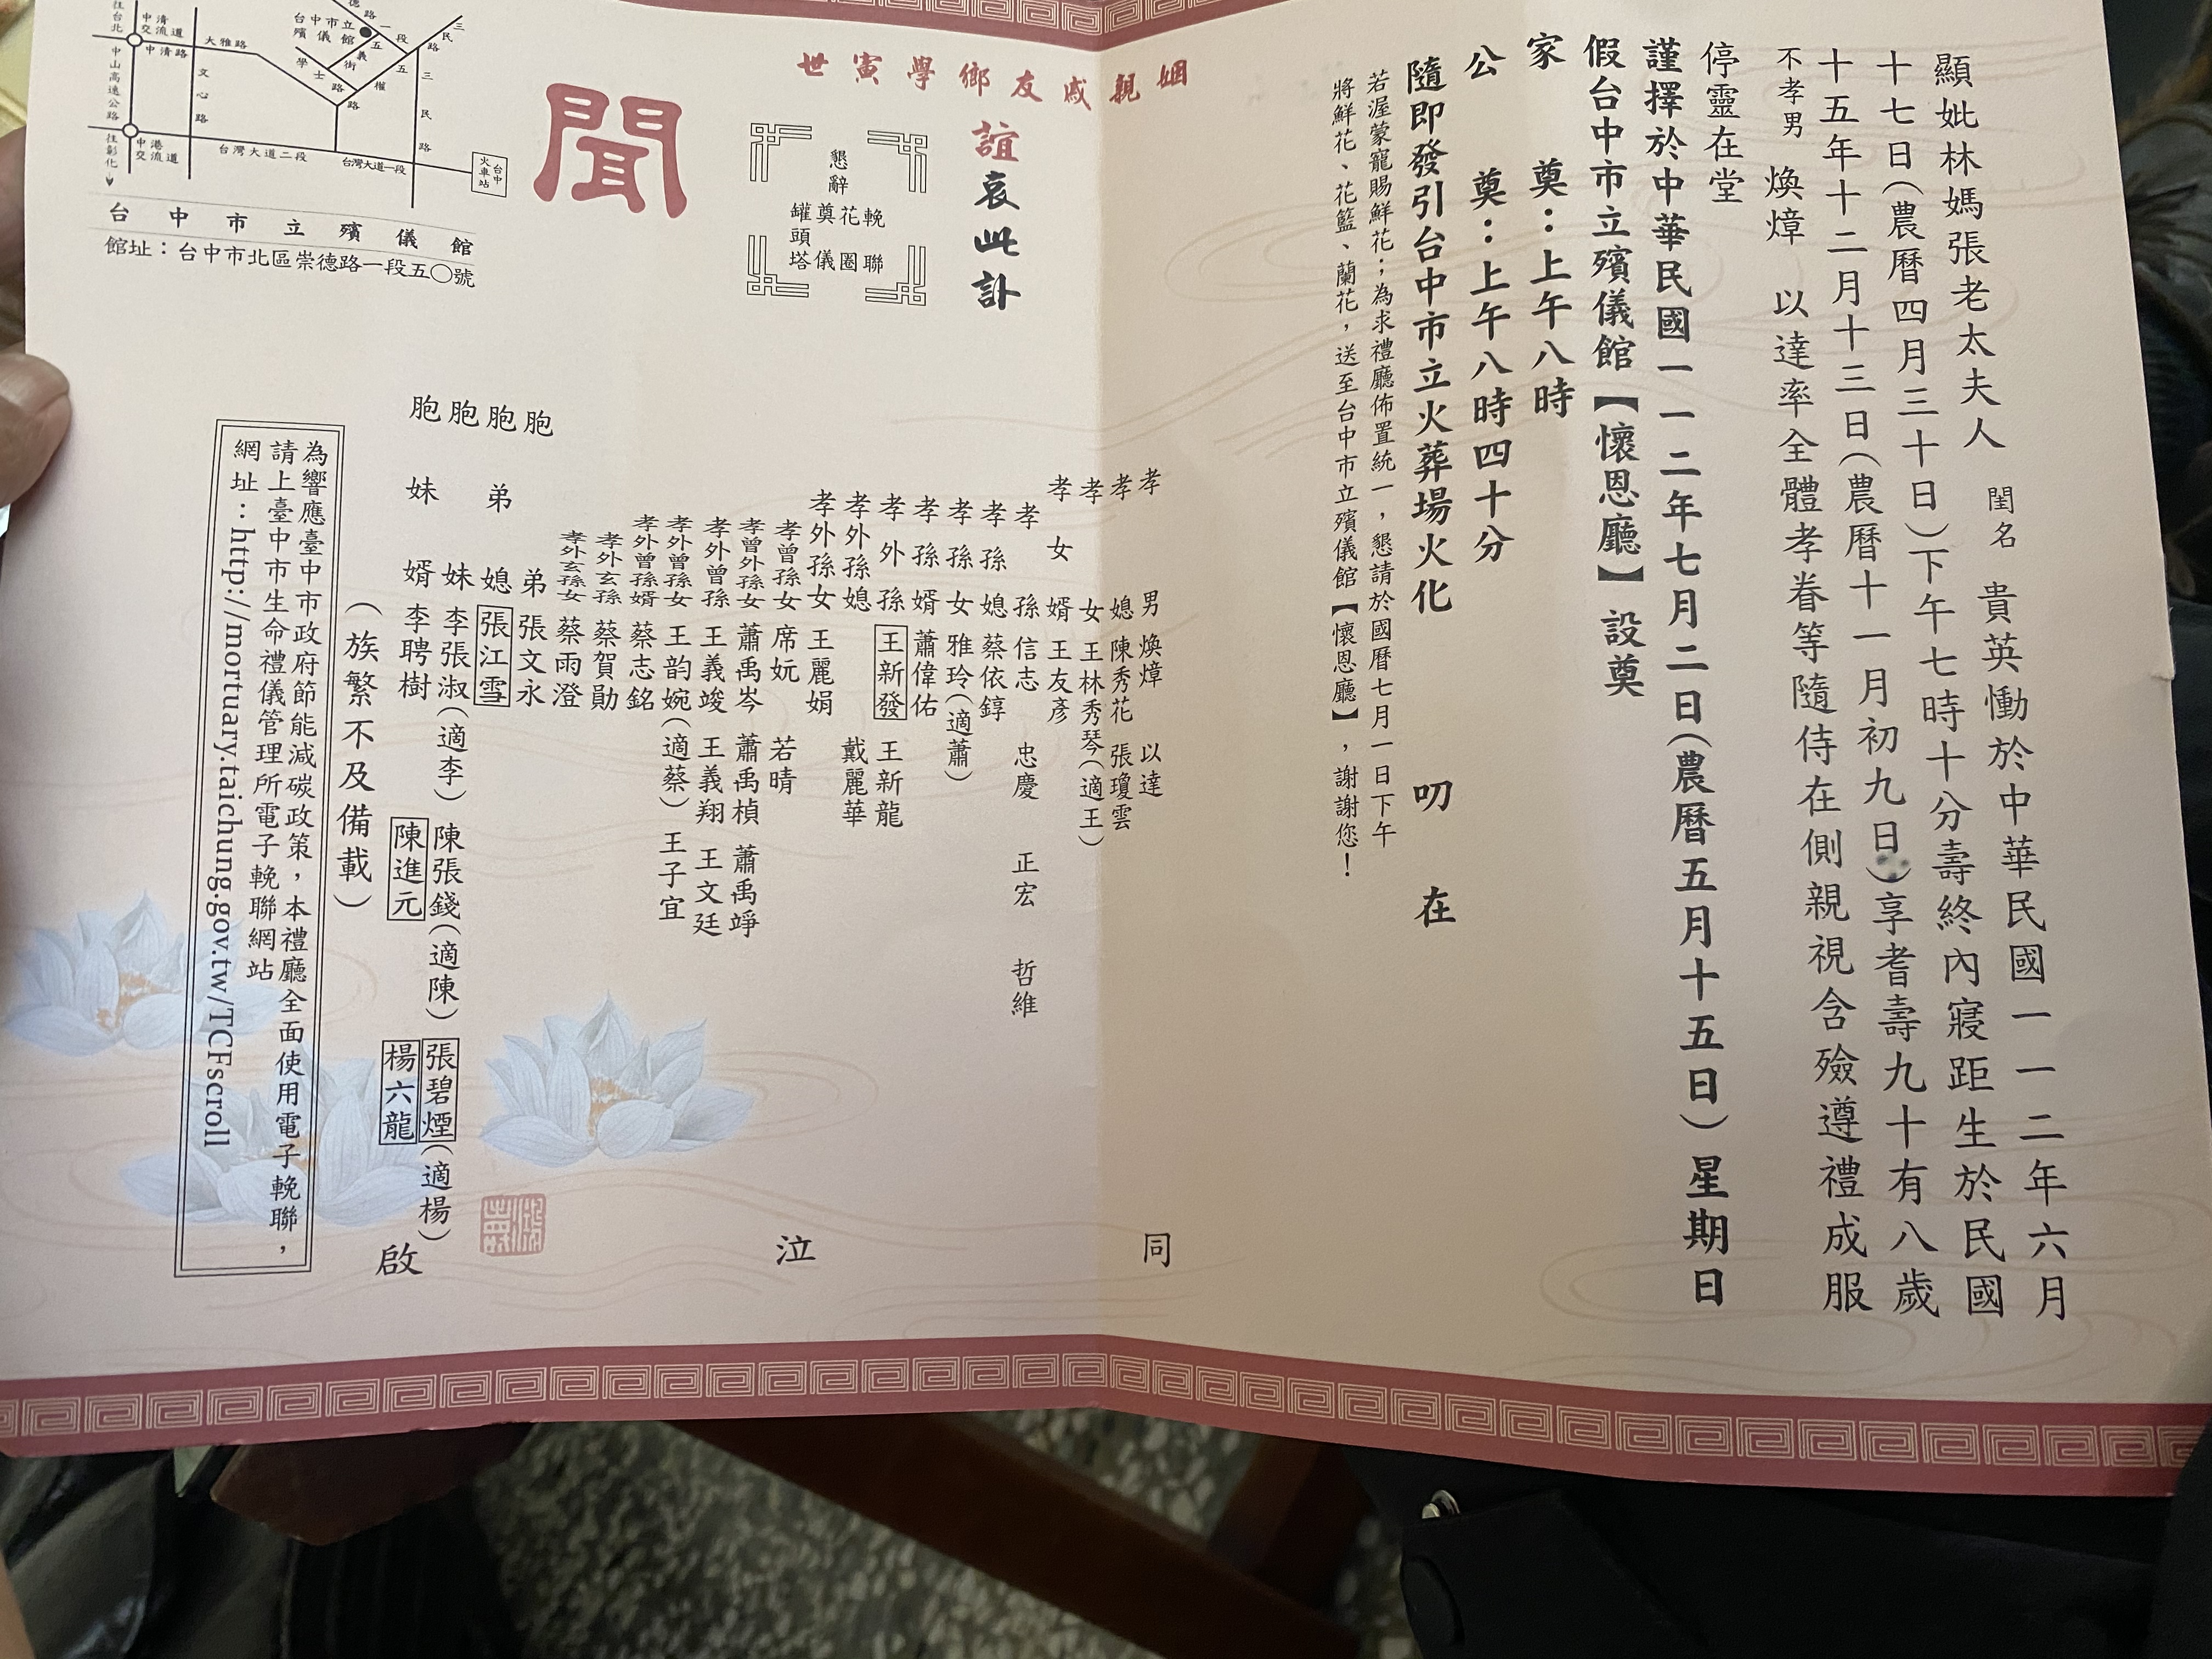 顯妣林媽張老太夫人 閨名 貴英慟於中華民國一一二年六月
十七日(農曆四月三十日)下午七時十分壽終內寢距生於民國
十五年十二月十三日(農曆十一月初九日)享耆壽九十有八歲
不孝男 煥煒 以達率全體孝眷等隨侍在側親視含殮遵禮成服
停靈在堂
謹擇於中華民國一一二年七月二日(農曆五月十五日)星期日
假台中市立殯儀館【懷恩廳】設奠
家 奠:上午八時
公 奠:上午八時四十分
隨即發引台中市立火葬場火化 叨 在
若渥蒙寵賜鮮花;為求禮廳佈置統一,懇請於國曆七月一日下午
將鮮花、花籃、蘭花,送至台中市立殯儀館【懷恩廳】,謝謝您!
姻親戚友鄉學寅世
誼哀此訃
聞
懇辭
輓聯
花圈
奠儀
罐頭塔
孝男 煥煒 以達
孝媳 陳秀花 張瓊雲
孝女 王林秀琴(適王)
孝女婿 王友彥
孝孫 信志 忠慶 正宏 哲維
孝孫媳 蔡依錞
孝孫女 雅玲(適蕭)
孝孫婿 蕭偉佑
孝外孫 王新發 王新龍
孝外孫媳 戴麗華
孝外孫女 王麗娟
孝曾孫女 席妧 若晴
孝曾外孫女 蕭禹岑 蕭禹楨 蕭禹竫
孝外曾孫 王義竣 王義翔 王文廷
孝外曾孫女 王韵婉(適蔡) 王子宜
孝外曾孫婿 蔡志銘
孝外玄孫 蔡賀勛
孝外玄孫女 蔡雨澄
胞弟 張文永
胞弟媳 張江雪
胞妹 李張淑(適李) 陳張錢(適陳) 張碧煙(適楊)
胞妹婿 李聘樹 陳進元 楊六龍
同
泣
啟
(族繁不及備載)
為響應臺中市政府節能減碳政策,本禮廳全面使用電子輓聯,
請上臺中市生命禮儀管理所電子輓聯網站
網址:http://mortuary.taichung.gov.tw/TCFscroll
往台北
中清交流道
中清路
大雅路
文心路
中山高速公路
往彰化
中港交流道
台灣大道二段
台灣大道一段
台中火車站
台中市立殯儀館
德路一段
五義街
學士路
五權路
三民路
三民路
台中市立殯儀館
館址:台中市北區崇德路一段五〇號